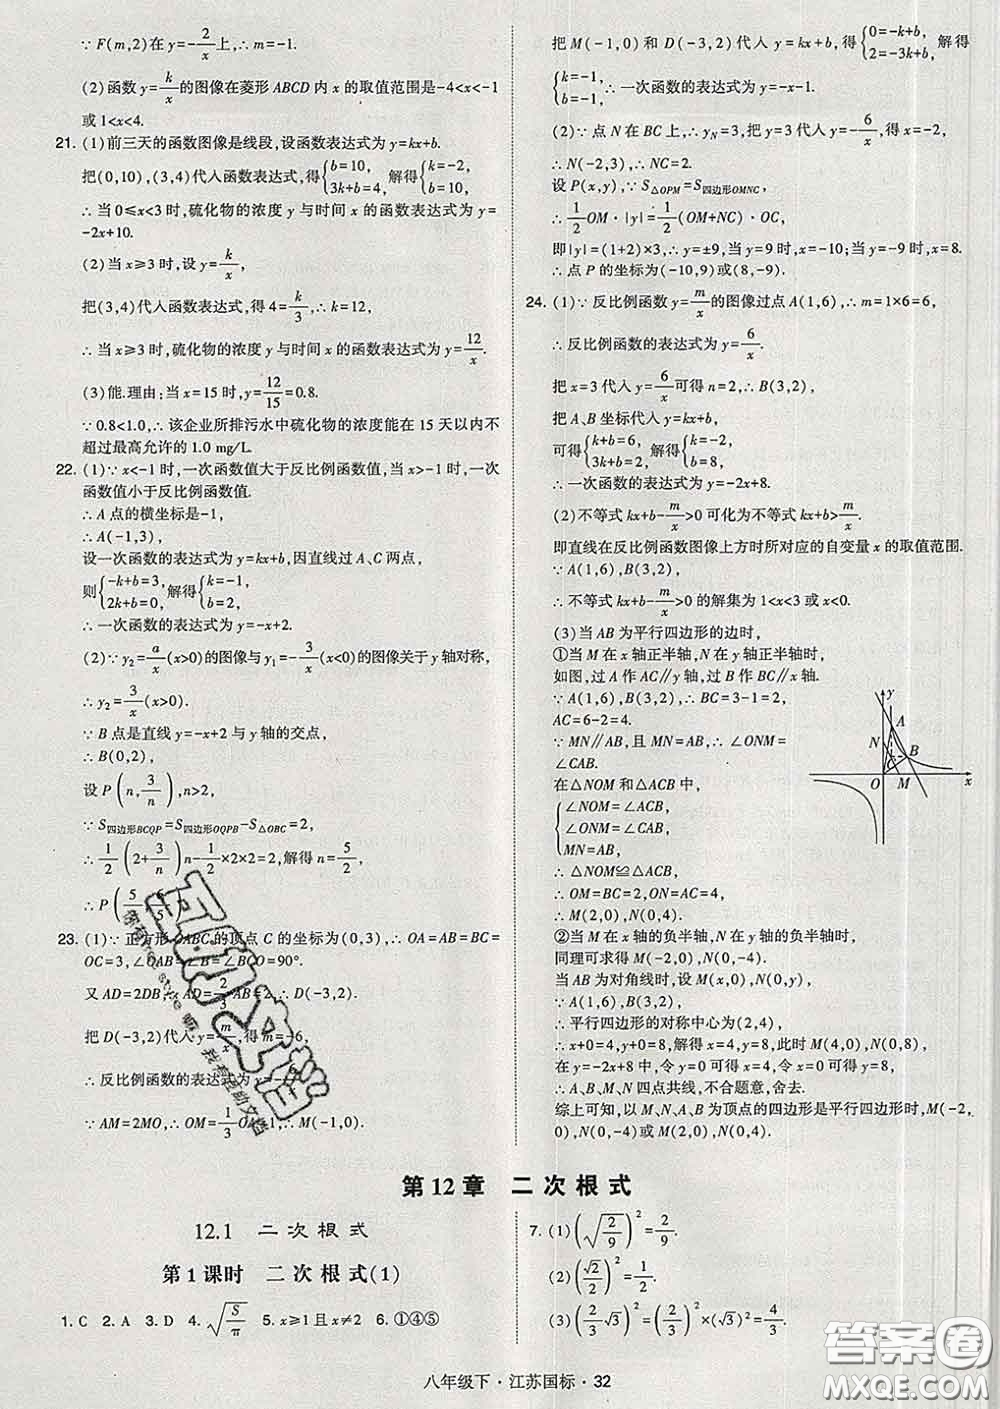 ∵F(m,2)在 y=-2/x 上,∴m=-1.
(2)函数 y=k/x 的图像在菱形 ABCD 内 x 的取值范围是-4<x<-1
或1<x<4.
21. (1)前三天的函数图像是线段,设函数表达式为 y=kx+b,
把(0,10),(3,4)代入函数表达式,得{b=10, 3k+b=4, 解得{k=-2, b=10,
∴当 0≤x<3 时,硫化物的浓度 y 与时间 x 的函数表达式为 y=
-2x+10.
(2)当 x≥3 时,设 y=k/x,
把(3,4)代入函数表达式,得 4=k/3,∴k=12,
∴当 x≥3 时,硫化物的浓度 y 与时间 x 的函数表达式为 y=12/x.
(3)能.理由:当 x=15 时,y=12/15=0.8.
∵0.8<1.0,∴该企业所排污水中硫化物的浓度能在 15 天以内不
超过最高允许的 1.0 mg/L.
22. (1)∵x<-1 时,一次函数值大于反比例函数值,当 x>-1 时,一次
函数值小于反比例函数值.
∴A 点的横坐标是-1,
∴A(-1,3),
设一次函数的表达式为 y=kx+b,因直线过 A、C 两点,
则{-k+b=3, 2k+b=0, 解得{k=-1, b=2,
∴一次函数的表达式为 y=-x+2.
(2)∵y₂=a/x(x>0)的图像与 y₁=-3/x(x<0)的图像关于 y 轴对称,
∴y₂=3/x(x>0).
∵B 点是直线 y=-x+2 与 y 轴的交点,
∴B(0,2),
设 P(n,3/n),n>2,
∵S四边形BCQP=S四边形OQPB-S△OBC=2,
∴1/2(2+3/n)n-1/2×2×2=2,解得 n=5/2,
∴P(5 6/5).
23. (1)∵正方形 OABC 的顶点 C 的坐标为(0,3),∴OA=AB=BC=
OC=3,∠OAB=∠B=∠BCO=90°.
又 AD=2DB,∴AD=2/3AB=2,∴D(-3,2).
把 D(-3,2)代入 y=m/x,得 m=-6,
∴反比例函数的表达式为 y=-
∵AM=2MO,∴OM=1/3OA=1,∴M(-1,0).
把 M(-1,0)和 D(-3,2)代入 y=kx+b,得{0=-k+b, 2=-3k+b, 解得
{k=-1, b=-1, ∴一次函数的表达式为 y=-x-1.
(2)∵点 N 在 BC 上,∴yN=3,把 y=3 代入 y=-6/x,得 x=-2,
∴N(-2,3),∴NC=2.
设 P(x,y),∵S△OPM=S四边形OMNC,
∴1/2OM·|y|=1/2(OM+NC)·OC,
即|y|=(1+2)×3,∴y=±9,当 y=9 时,x=-10;当 y=-9 时,x=8.
∴点 P 的坐标为(-10,9)或(8,-9).
24. (1)∵反比例函数 y=m/x 的图像过点 A(1,6),∴m=1×6=6,
∴反比例函数的表达式为 y=6/x.
把 x=3 代入 y=6/x 可得 n=2,∴B(3,2),
把 A、B 坐标代入 y=kx+b,
可得{k+b=6, 3k+b=2, 解得{k=-2, b=8,
∴一次函数的表达式为 y=-2x+8.
(2)不等式 kx+b-m/x>0 可化为不等式 kx+b>m/x.
即直线在反比例函数图像上方时所对应的自变量 x 的取值范围.
∵A(1,6),B(3,2),
∴不等式 kx+b-m/x>0 的解集为 1<x<3 或 x<0.
(3)当 AB 为平行四边形的边时,
①当 M 在 x 轴正半轴,N 在 y 轴正半轴时,
如图,过 A 作 AC∥y 轴,过 B 作 BC∥x 轴,
∵A(1,6),B(3,2),∴BC=3-1=2,
AC=6-2=4.
∵MN∥AB,且 MN=AB,∴∠ONM=
∠CAB.
在△NOM 和△ACB 中,
{∠NOM=∠ACB,
∠ONM=∠CAB,
MN=AB,
∴△NOM≌△ACB,
∴OM=BC=2,ON=AC=4,
∴M(2,0),N(0,4).
②当 M 在 x 轴的负半轴,N 在 y 轴的负半轴时,
同理可求得 M(-2,0),N(0,-4).
当 AB 为对角线时,设 M(x,0),N(0,y),
∵A(1,6),B(3,2),
∴平行四边形的对称中心为(2,4),
∴x+0=4,y+0=8,∴x=4,y=8,此时 M(4,0),N(0,8),
在 y=-2x+8 中,令 y=0 可得 x=4,令 x=0 可得 y=8,
∴A、B、M、N 四点共线,不合题意,舍去.
综上可知,以 M、N、A、B 为顶点的四边形是平行四边形时,M(-2,
0),N(0,-4)或 M(2,0),N(0,4).
y
A
N
B
O M x
第 12 章 二 次 根 式
12.1 二 次 根 式
第 1 课时 二 次 根 式(1)
1. C 2. A 3. D 4. √(S/π) 5. x≥1 且 x≠2 6. ①④⑤
7. (1)(√(2/9))²=2/9.
(2)(√2/2)²=1/2.
(3)(2/3√3)²=(2/3)²×(√3)²=4/3.
八年级下·江苏国标·32
答案圈
MXQE.COM